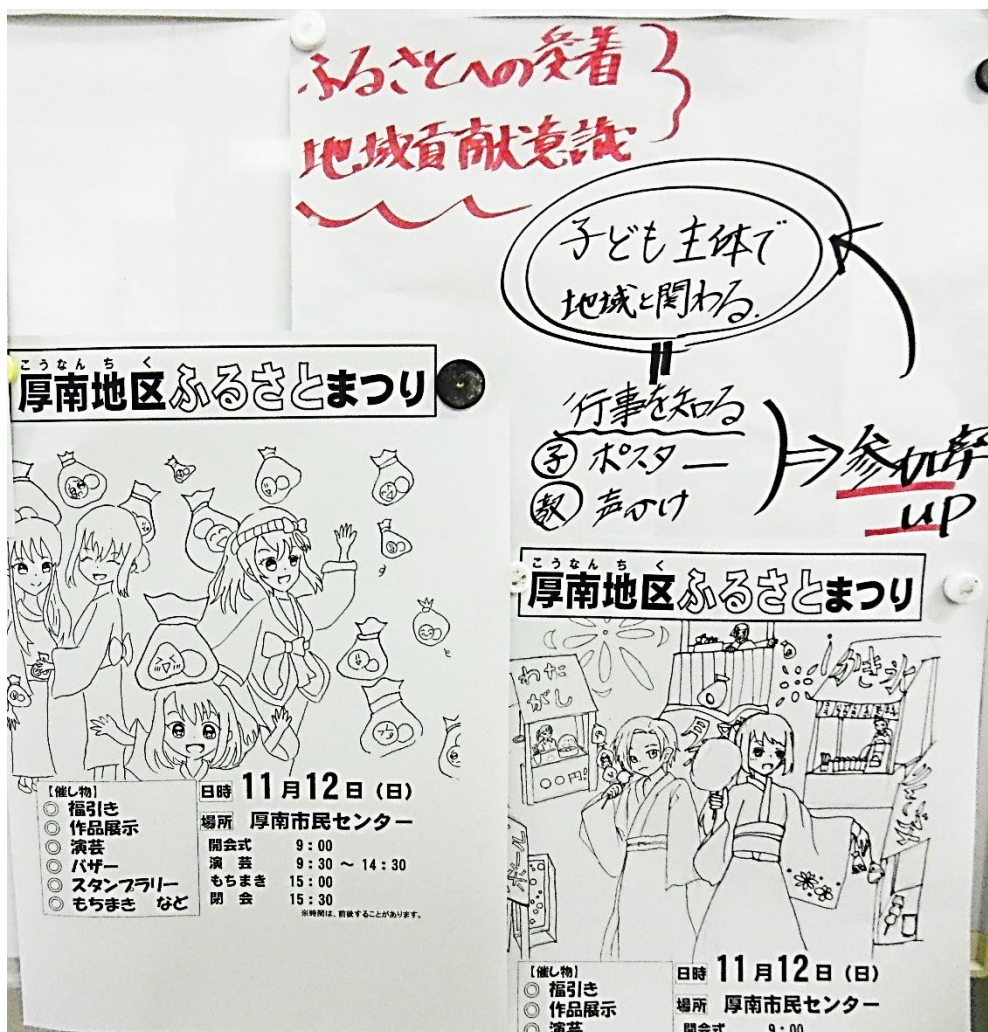 ふるさとへの愛着
地域貢献意識
子ども主体で
地域と関わる.
〃
行事を知る
子 ポスター
教 声かけ
⇒ 参加率
up
こうなんちく
厚南地区ふるさとまつり
【催し物】
◎ 福引き
◎ 作品展示
◎ 演芸
◎ バザー
◎ スタンプラリー
◎ もちまき など
日時 11月12日(日)
場所 厚南市民センター
開会式 9:00
演芸 9:30 ~ 14:30
もちまき 15:00
閉会 15:30
※時間は、前後することがあります。
こうなんちく
厚南地区ふるさとまつり
わた
がし
〇〇円!
かき氷
ボール
【催し物】
◎ 福引き
◎ 作品展示
◎ 演芸
日時 11月12日(日)
場所 厚南市民センター
開会式 9:00